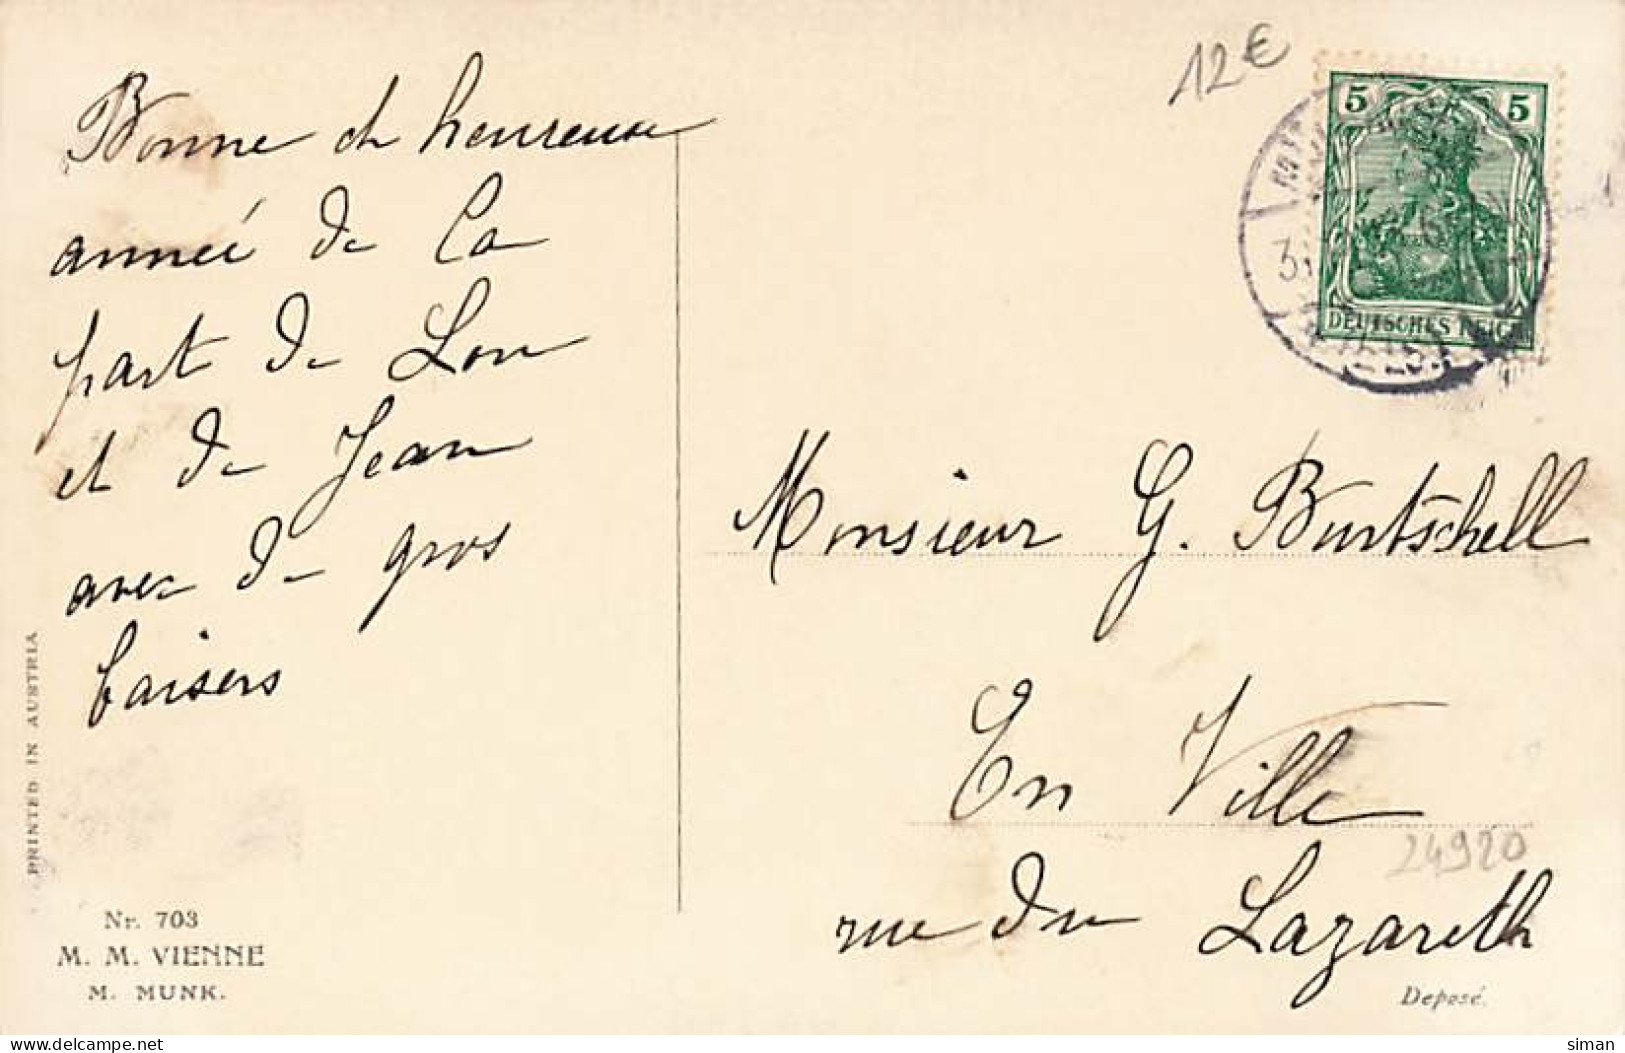 Bonne et heureuse
année de la
part de Lou
et de Jean
avec de gros
baisers
PRINTED IN AUSTRIA
Nr. 703
M. M. VIENNE
M. MUNK.
12€
5 5
DEUTSCHES REICH
Monsieur G. Burtschell
En Ville
24920
rue du Lazareth
Deposé.
delcampe.net
siman